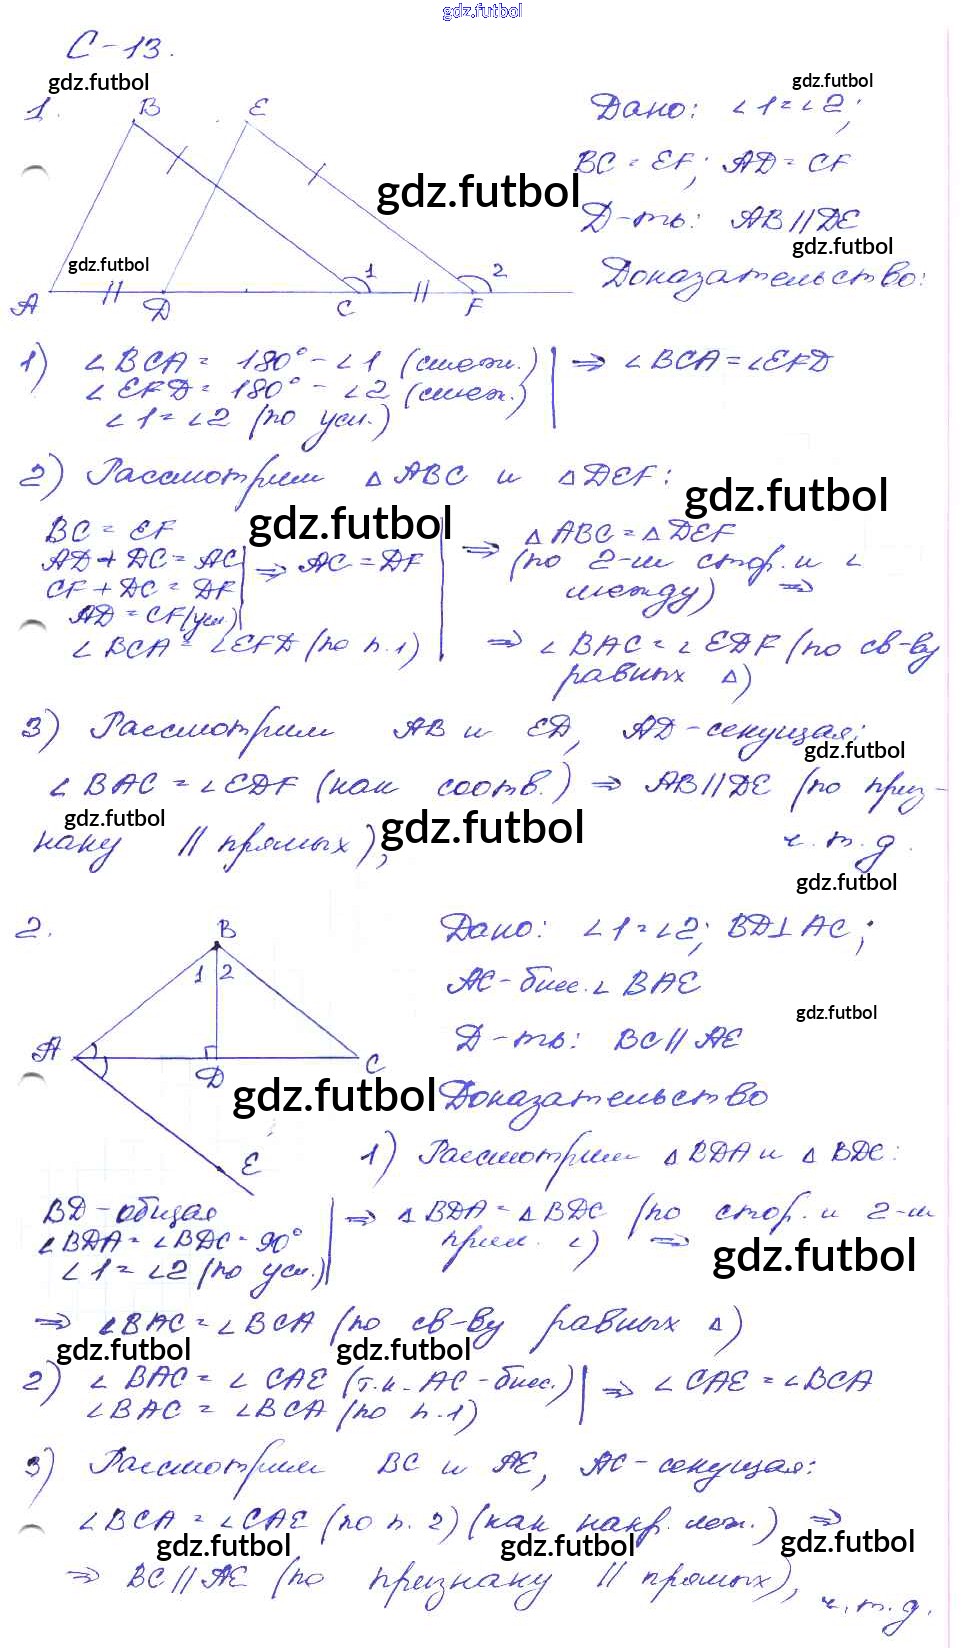 gdz.futbol
С-13.
gdz.futbol
gdz.futbol
1.
B
E
Дано: ∠1=∠2;
BC = EF; AD = CF
gdz.futbol
Д-ть: AB//DE
gdz.futbol
gdz.futbol
1
2
Доказательство:
A
D
C
F
1) ∠BCA = 180° - ∠1 (смеж.)
⇒ ∠BCA = ∠EFD
∠EFD = 180° - ∠2 (смеж.)
∠1 = ∠2 (по усл.)
2) Рассмотрим △ABC и △DEF:
gdz.futbol
gdz.futbol
BC = EF
AD + DC = AC
CF + DC = DF
AD = CF (усл)
⇒ AC = DF
∠BCA = ∠EFD (по п.1)
⇒ △ABC = △DEF
(по 2-м стор. и ∠
между) ⇒
⇒ ∠BAC = ∠EDF (по св-ву
равных △)
3) Рассмотрим AB и ED, AD-секущая:
gdz.futbol
∠BAC = ∠EDF (как соотв.) ⇒ AB//DE (по приз-
gdz.futbol
gdz.futbol
наку // прямых),
ч.т.д.
gdz.futbol
2.
B
1
2
Дано: ∠1 = ∠2; BD⊥AC;
AC-бисс. ∠BAE
gdz.futbol
Д-ть: BC // AE
A
D
C
E
gdz.futbol
Доказательство
1) Рассмотрим △BDA и △BDC:
BD-общая
∠BDA = ∠BDC = 90°
∠1 = ∠2 (по усл.)
⇒ △BDA = △BDC (по стор. и 2-м
прил. ∠) ⇒
gdz.futbol
⇒ ∠BAC = ∠BCA (по св-ву равных △)
gdz.futbol
gdz.futbol
2) ∠BAC = ∠CAE (т.к. AC-бисс.)
⇒ ∠CAE = ∠BCA
∠BAC = ∠BCA (по п.1)
3) Рассмотрим BC и AE, AC-секущая:
∠BCA = ∠CAE (по п. 2) (как накр. леж.) ⇒
gdz.futbol
gdz.futbol
gdz.futbol
⇒ BC // AE (по признаку // прямых),
ч.т.д.